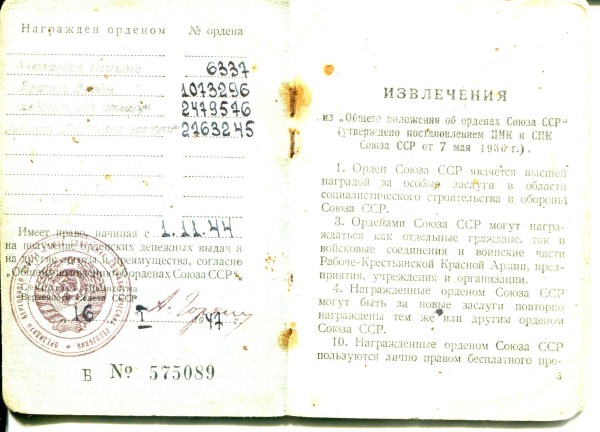 Награжден орденом № ордена
Александра Невского 6337
Красная Звезда 1073296
медалью „За отвагу“ 2479576
2163245
Имеет право, начиная с 1.11.44
на получение орденских денежных выдач и
на другие льготы и преимущества, согласно
„Общего положения об орденах Союза ССР“.
Секретарь Президиума
Верховного Совета СССР
А. Горкин
16 I 1947 г.
Б № 575089
ИЗВЛЕЧЕНИЯ
из „Общего положения об орденах Союза ССР“
(утверждено постановлением ЦИК и СНК
Союза ССР от 7 мая 1936 г.).
1. Орден Союза ССР является высшей
наградой за особые заслуги в области
социалистического строительства и обороны
Союза ССР.
3. Орденами Союза ССР могут награ-
ждаться как отдельные граждане, так и
войсковые соединения и воинские части
Рабоче-Крестьянской Красной Армии, пред-
приятия, учреждения и организации.
4. Награжденные орденом Союза ССР
могут быть за новые заслуги повторно
награждены тем же или другим орденом
Союза ССР.
10. Награжденные орденом Союза ССР
пользуются лично правом бесплатного про-
3